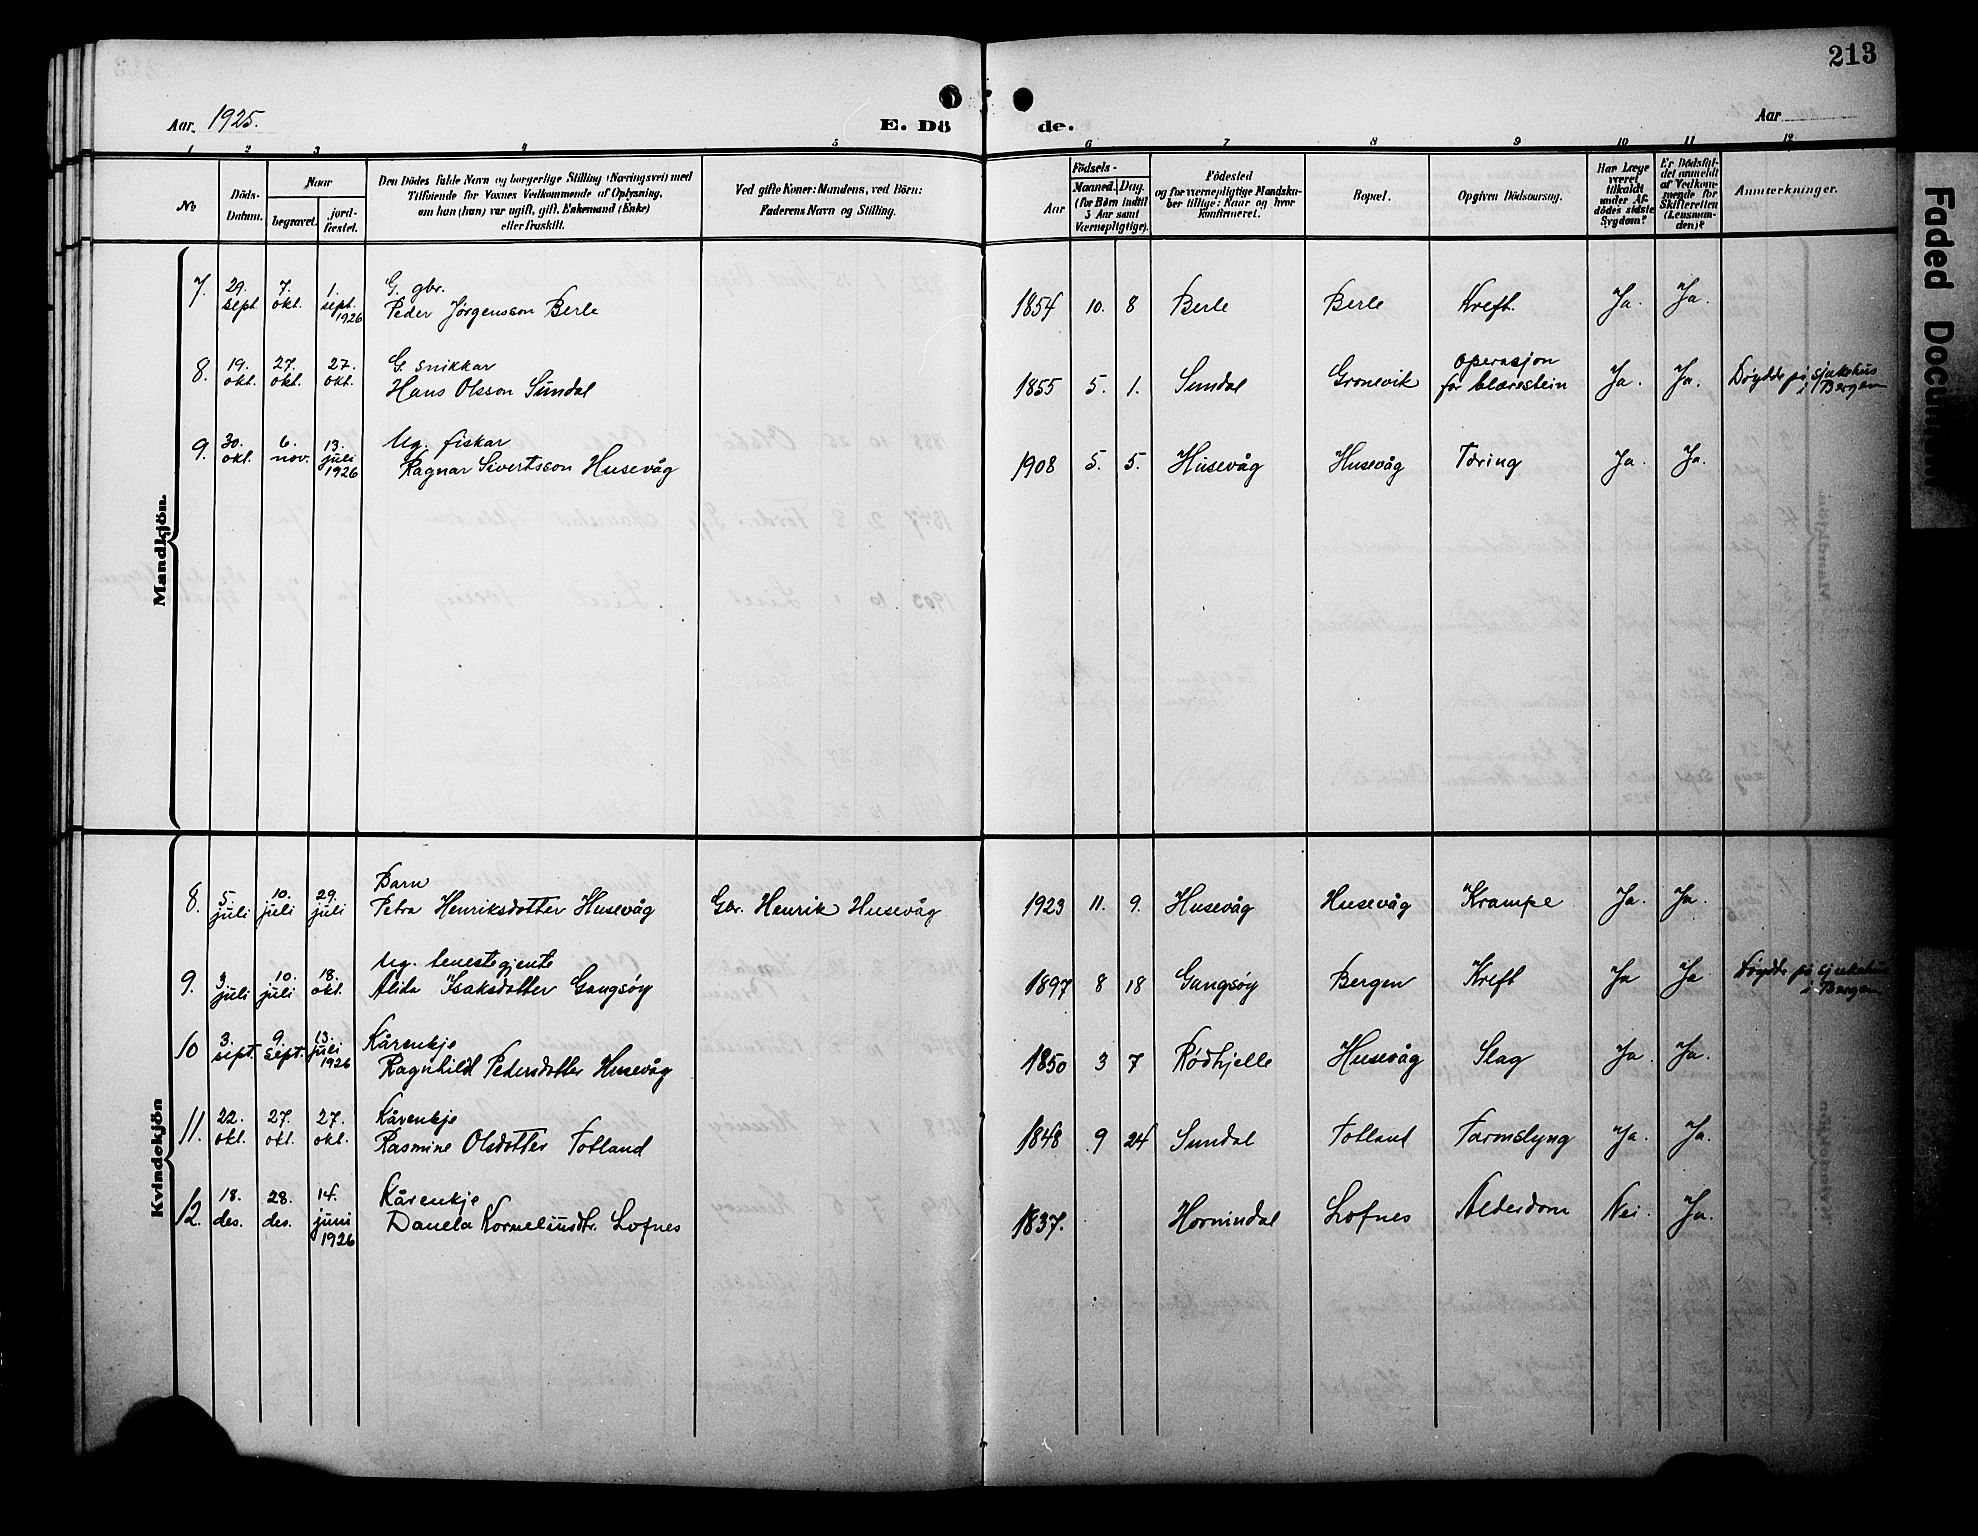 213
Aar. 1925.
E. Dö de.
Aar
1 2 3 4 5 6 7 8 9 10 11 12
No
Döds-Datum.
Naar
begravet.
jord-fæstet.
Den Dödes fulde Navn og borgerlige Stilling (Næringsvei) med
Tilföiende for Voxnes Vedkommende af Oplysning,
om han (hun) var ugift, gift, Enkemand (Enke)
eller fraskilt.
Ved gifte Koner: Mandens, ved Börn:
Faderens Navn og Stilling.
Födsels-
Aar
Maaned. Dag.
(for Børn indtil
3 Aar samt
Værnepligtige).
Födested
og for værnepligtige Mandska-
ber tillige: Naar og hvor
konfirmeret.
Bopæl.
Opgiven Dödsaarsag.
Har Læge
været
tilkaldt
under Af-
dödes sidste
Sygdom?
Er Dödsfal-
det anmeldt
af Vedkom-
mende for
Skifteretten
(Lensman-
den)?
Anmærkninger.
Mandkjön.
7. 29. sept. 7. okt. 1. sept. 1926 G. gbr.
Peder Jørgensson Berle 1854 10. 8 Berle Berle Kreft. Ja. Ja.
8. 19. okt. 27. okt. 27. okt. G. snikkar
Hans Olsson Sundal 1855 5. 1. Sundal Gronevik operasjon
for blærestein Ja. Ja. Døydde på sjukehus
i Bergen
9. 30. okt. 6. nov. 13. juli 1926 Ug. fiskar
Ragnar Sivertsson Husevåg 1908 5. 5. Husevåg Husevåg Tæring Ja. Ja.
Kvindekjön
8. 5. juli 10. juli 29. juli Barn
Petra Henriksdotter Husevåg Gbr. Henrik Husevåg 1923 11. 9. Husevåg Husevåg Krampe Ja. Ja.
9. 3. juli 10. juli 18. okt. Ug. tenestegjente
Alida Isaksdotter Gangsøy 1897 8 18 Gangsøy Bergen Kreft Ja Ja Døydde på sjukehus
i Bergen
10 3. sept. 9. sept. 13. juli 1926 Kårenkje
Ragnhild Pedersdotter Husevåg 1850 3 7 Rødhjelle Husevåg Slag Ja. Ja.
11. 22. okt. 27. okt. 27. okt. Kårenkje
Rasmine Olsdotter Totland 1848 9 24 Sundal Totland Tarmslyng Ja. Ja.
12. 18. des. 28. des. 14. juni 1926 Kårenkje
Danela Korneliusdtr. Lofnes 1837. Hornindal Lofnes Alderdom Nei. Ja.
Faded Document